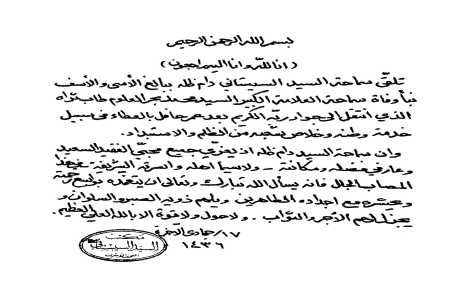 بسم الله الرحمن الرحيم
(انا لله وانا اليه راجعون)
تلقى سماحة السيد السيستاني دام ظله ببالغ الأسى والأسف
نبأ وفاة سماحة العلامة الكبير السيد محمد بحر العلوم طاب ثراه
الذي انتقل الى جوار ربّه الكريم بعد عمر حافل بالعطاء في سبيل
خدمة وطنه وخلاص شعبه من الظلم والاستبداد.
وان سماحة السيد دام ظله اذ يعزّي جميع محبّي الفقيد السعيد
وعارفي فضله ومكانته - ولاسيما اهله واسرته الشريفة - بهذا
المصاب الجلل فانه يسأل الله تبارك وتعالى ان يتغمّده بواسع رحمته
ويحشره مع اجداده الطاهرين ويلهم ذويه الصبر والسلوان و
يجزل لهم الأجر والثواب. ولا حول ولا قوة الا بالله العلي العظيم.
١٧/جمادى الآخرة
١٤٣٦
مكتب
السيد السيستاني